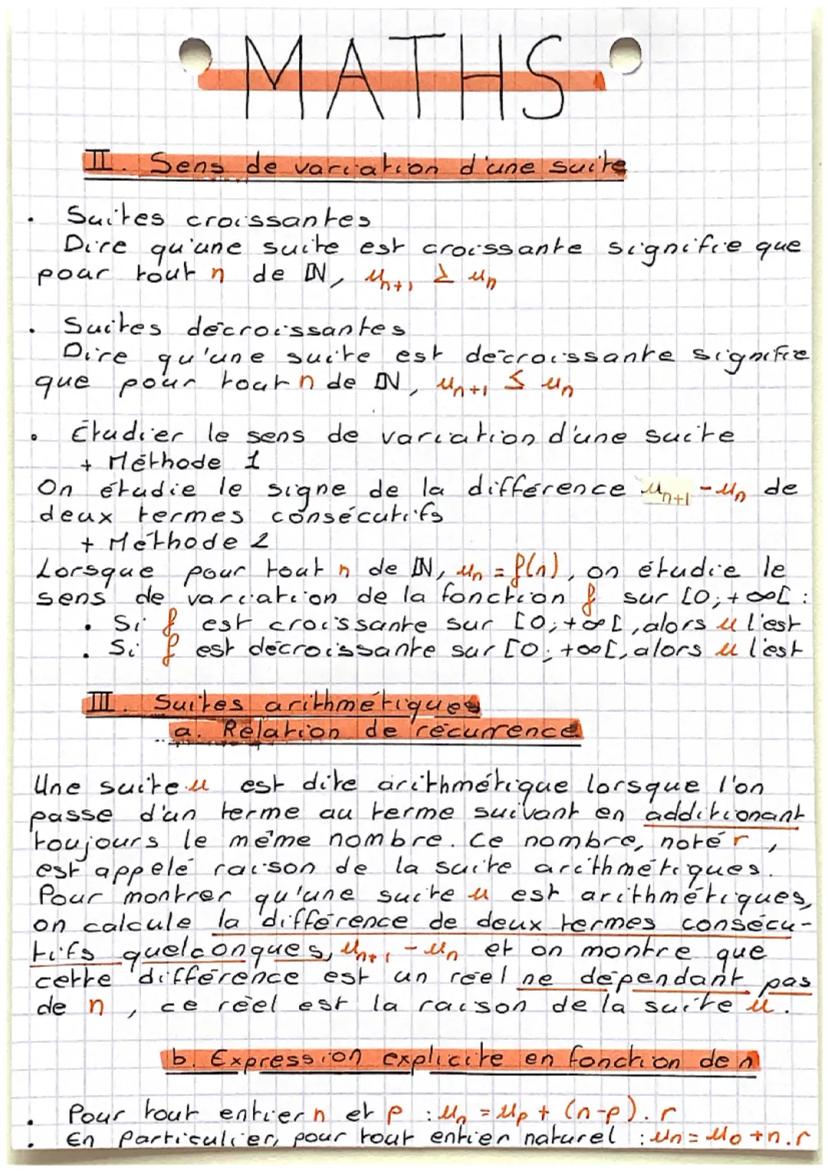 MATHS
II. Sens de variation d'une suite
• Suites croissantes
Dire qu'une suite est croissante signifie que
pour tout n de ℕ, un+1 ≥ un
• Suites décroissantes
Dire qu'une suite est décroissante signifie
que pour tout n de ℕ, un+1 ≤ un
• Étudier le sens de variation d'une suite
+ Méthode 1
On étudie le signe de la différence un+1 - un de
deux termes consécutifs
+ Méthode 2
Lorsque pour tout n de ℕ, un = f(n), on étudie le
sens de variation de la fonction f sur [0;+∞[ :
• Si f est croissante sur [0;+∞[, alors u l'est
• Si f est décroissante sur [0;+∞[, alors u l'est
III. Suites arithmétiques
a. Relation de récurrence
Une suite u est dite arithmétique lorsque l'on
passe d'un terme au terme suivant en additionant
toujours le même nombre. Ce nombre, noté r,
est appelé raison de la suite arithmétiques.
Pour montrer qu'une suite u est arithmétiques,
on calcule la différence de deux termes consécu-
tifs quelconques, un+1 - un et on montre que
cette différence est un réel ne dépendant pas
de n, ce réel est la raison de la suite u.
b. Expression explicite en fonction de n
• Pour tout entier n et p : un = up + (n-p).r
• En particulier, pour tout entier naturel : un = u0 + n.r